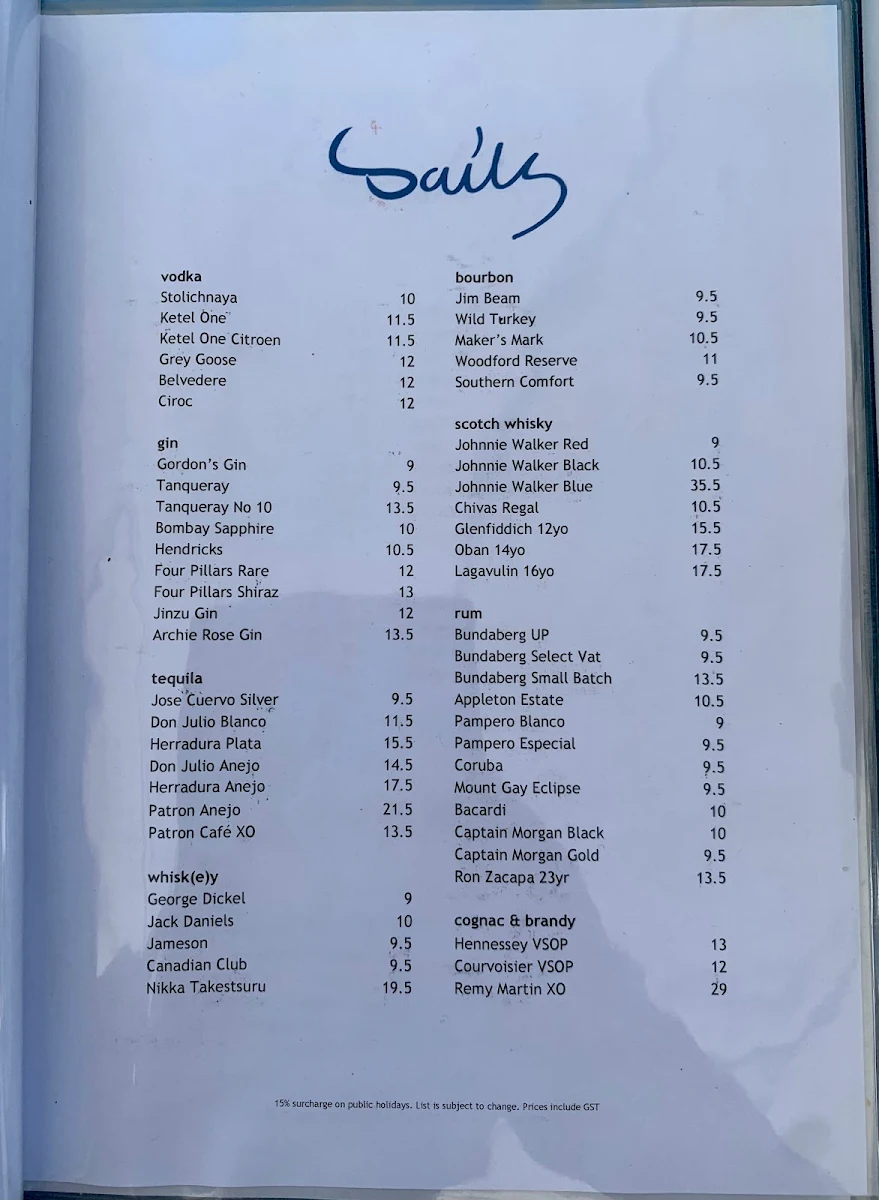 Sails
vodka
Stolichnaya 10
Ketel One 11.5
Ketel One Citroen 11.5
Grey Goose 12
Belvedere 12
Ciroc 12
gin
Gordon's Gin 9
Tanqueray 9.5
Tanqueray No 10 13.5
Bombay Sapphire 10
Hendricks 10.5
Four Pillars Rare 12
Four Pillars Shiraz 13
Jinzu Gin 12
Archie Rose Gin 13.5
tequila
Jose Cuervo Silver 9.5
Don Julio Blanco 11.5
Herradura Plata 15.5
Don Julio Anejo 14.5
Herradura Anejo 17.5
Patron Anejo 21.5
Patron Café XO 13.5
whisk(e)y
George Dickel 9
Jack Daniels 10
Jameson 9.5
Canadian Club 9.5
Nikka Takestsuru 19.5
bourbon
Jim Beam 9.5
Wild Turkey 9.5
Maker's Mark 10.5
Woodford Reserve 11
Southern Comfort 9.5
scotch whisky
Johnnie Walker Red 9
Johnnie Walker Black 10.5
Johnnie Walker Blue 35.5
Chivas Regal 10.5
Glenfiddich 12yo 15.5
Oban 14yo 17.5
Lagavulin 16yo 17.5
rum
Bundaberg UP 9.5
Bundaberg Select Vat 9.5
Bundaberg Small Batch 13.5
Appleton Estate 10.5
Pampero Blanco 9
Pampero Especial 9.5
Coruba 9.5
Mount Gay Eclipse 9.5
Bacardi 10
Captain Morgan Black 10
Captain Morgan Gold 9.5
Ron Zacapa 23yr 13.5
cognac & brandy
Hennessey VSOP 13
Courvoisier VSOP 12
Remy Martin XO 29
15% surcharge on public holidays. List is subject to change. Prices include GST